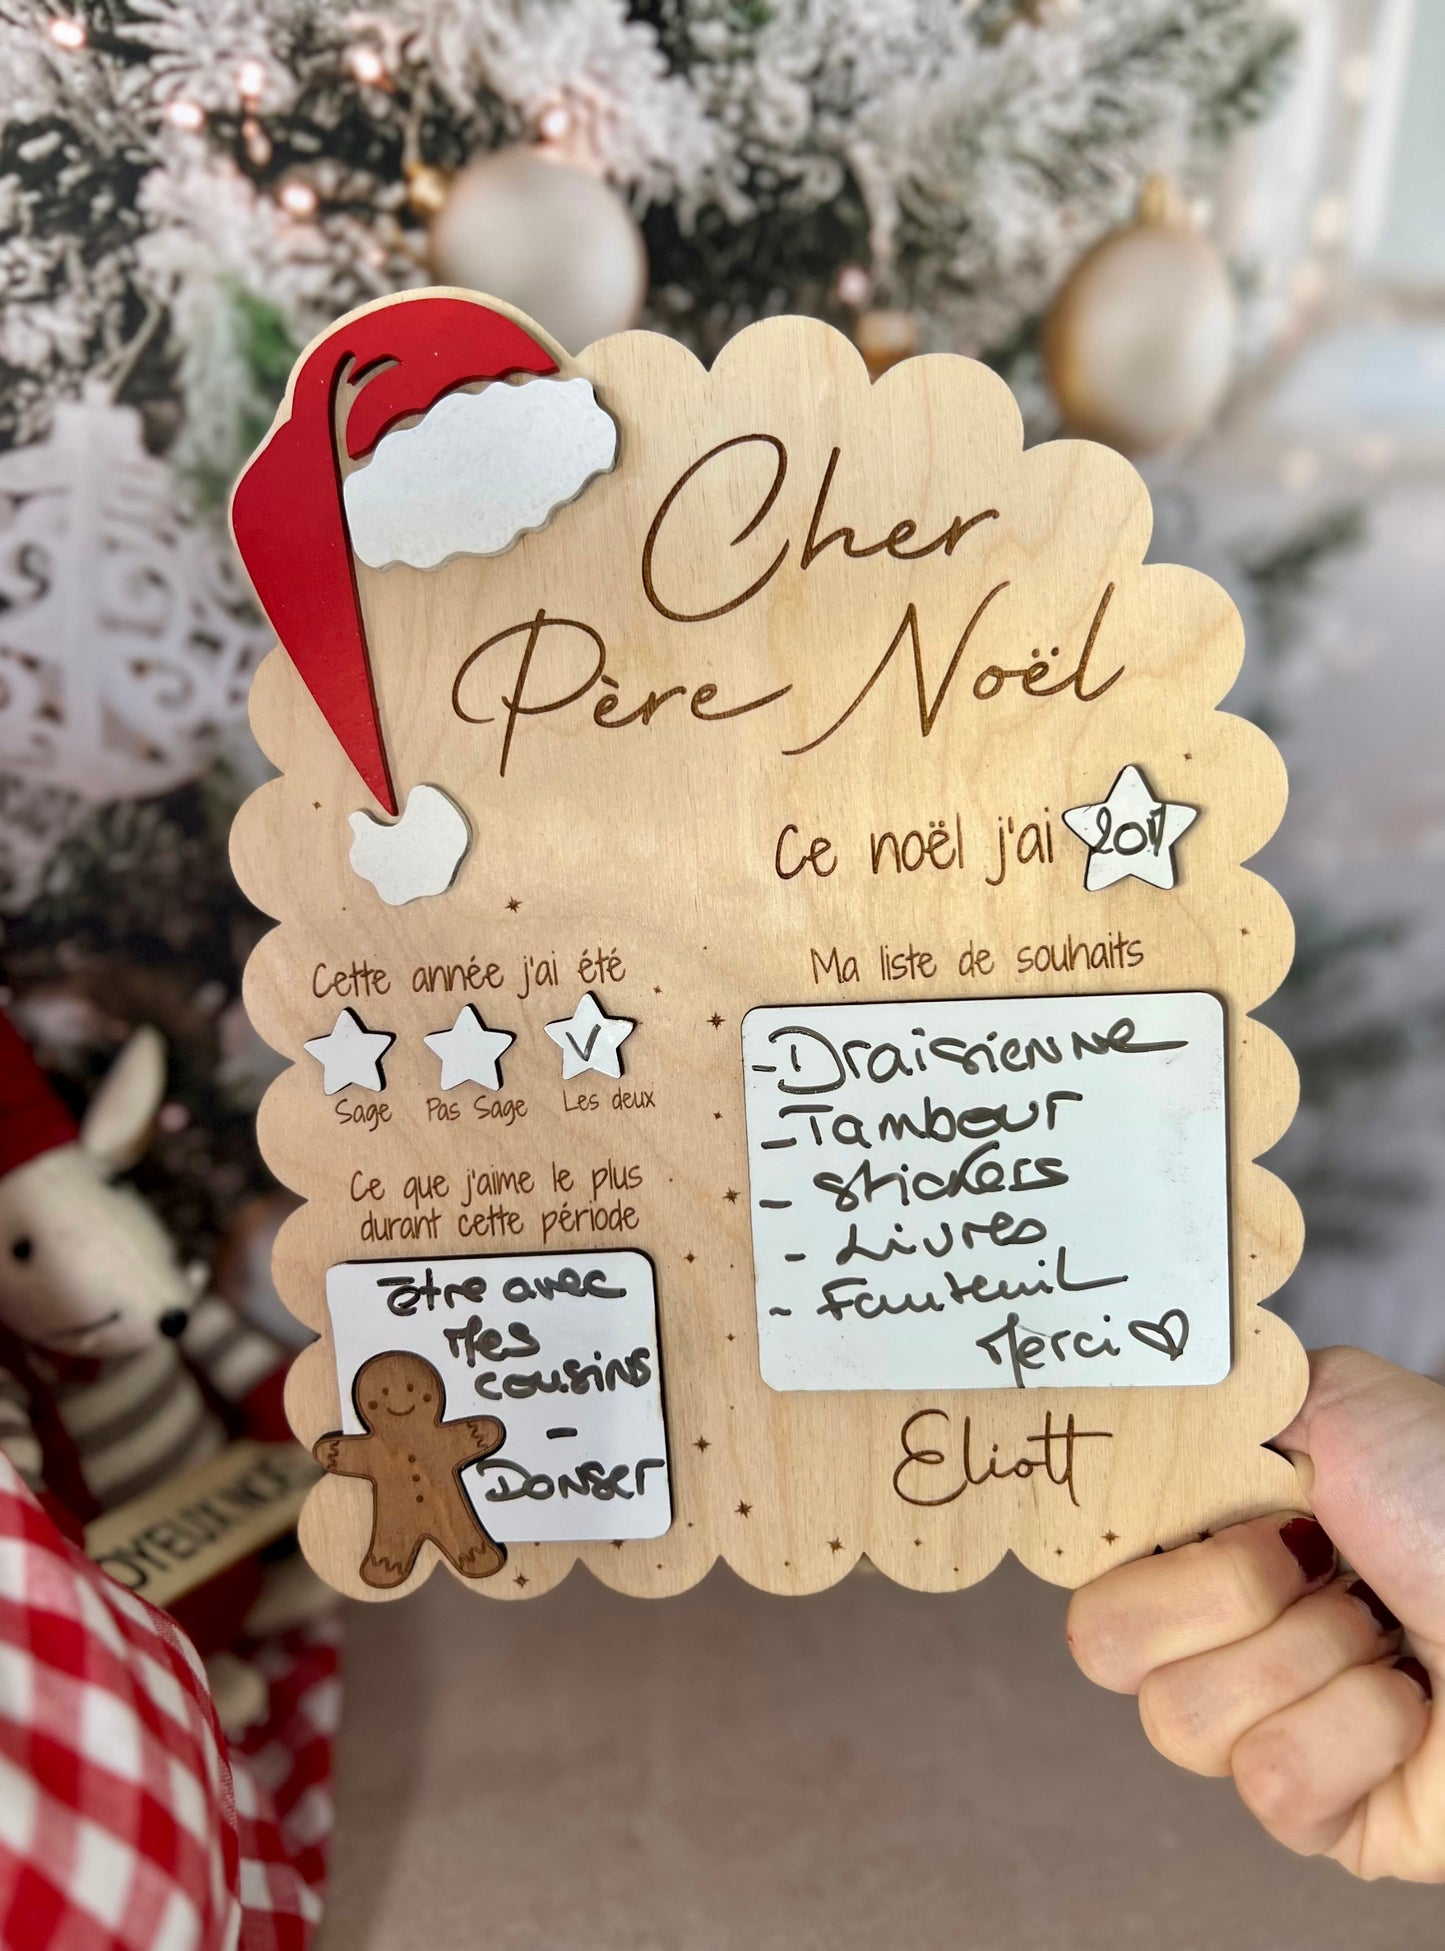 Cher
Père Noël
Ce noël j'ai
Cette année j'ai été
Sage
Pas Sage
Les deux
Ce que j'aime le plus
durant cette période
être avec
Mes
cousins
-
Danser
Ma liste de souhaits
- Draisienne
- Tambour
- Stickers
- Livres
- Fauteuil
Merci ♡
Eliott
OYEUX NO